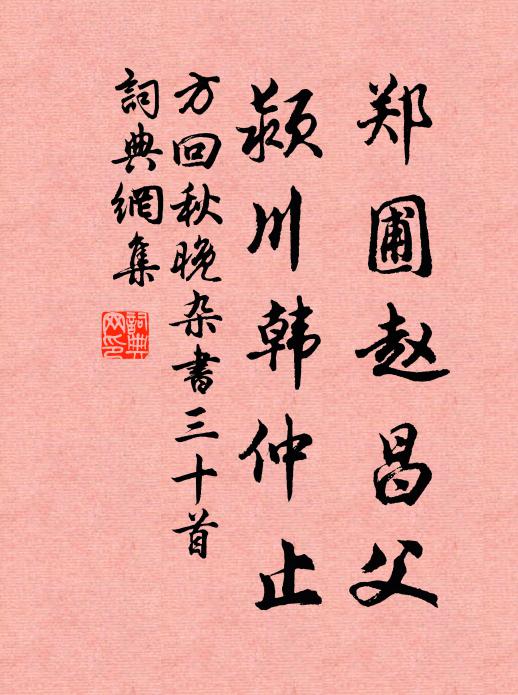 郑圃赵昌父
颍川韩仲止
方回秋晚杂书三十首
詞典網集
詞典网印